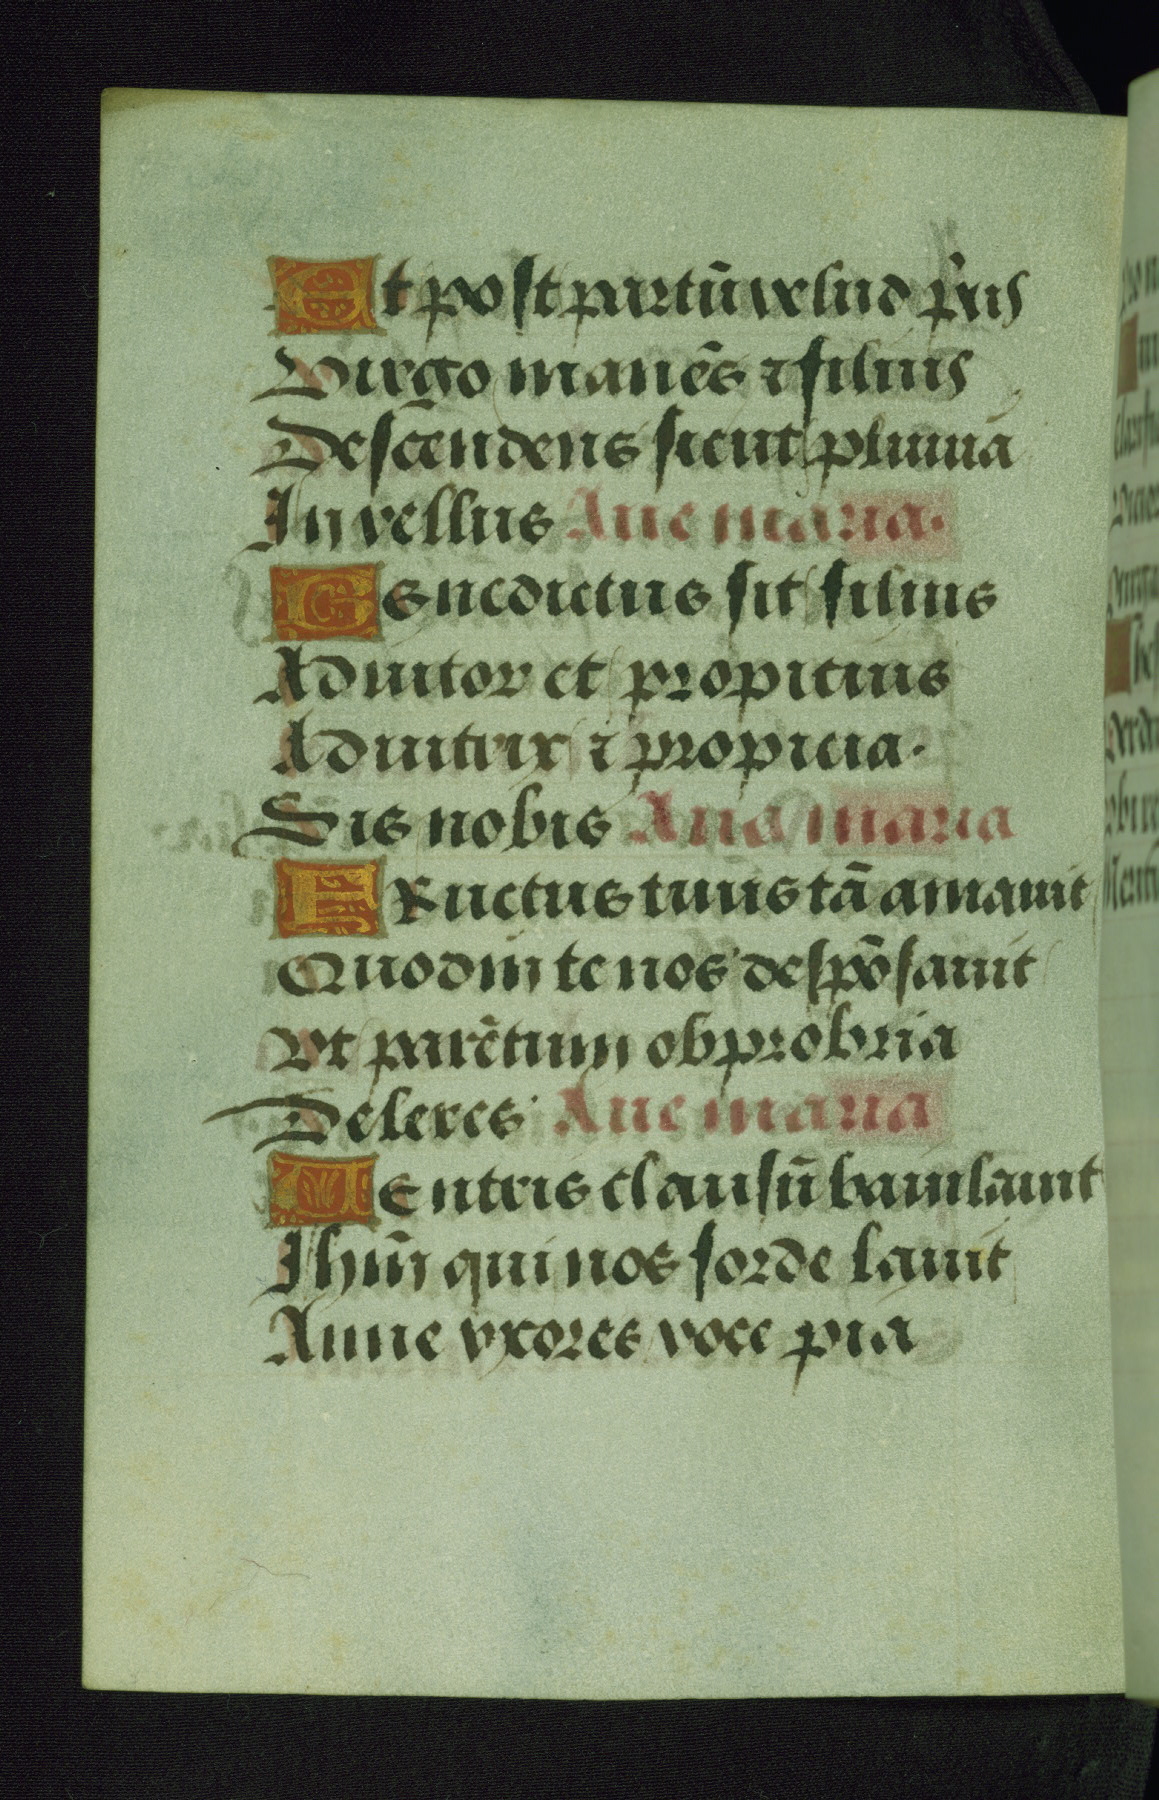 Et post partū velud p̄us
Virgo manēs ⁊ filius
Descēndens sicut pluuia
In vellus Aue maria.
Benedictus sit filius
Adiutor et propitius
Adiutrix ⁊ propicia.
Sis nobis Aue maria
Fructus tuus tā amauit
Quod in te nos despōsauit
Vt parētum obprobria
Deleres Aue maria
Ventris clausū baiulauit
Jhūm qui nos sorde lauit
Anne vxores voce pia